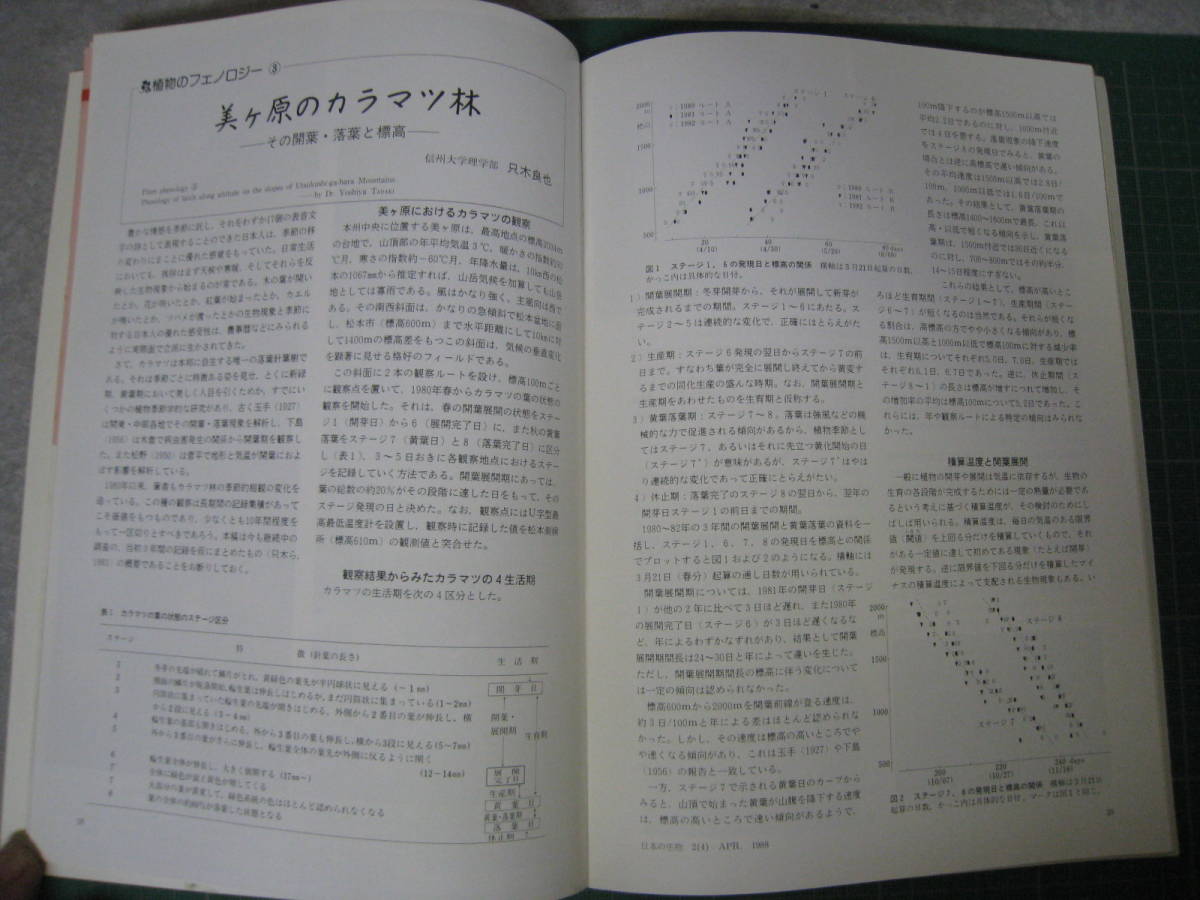 植物のフェノロジー ③
美ヶ原のカラマツ林
——その開葉・落葉と標高——
信州大学理学部 只木良也
Plant phenology ③
Phenology of larch along altitude on the slopes of Utsukushigahara Mountains
——by Dr. Yoshiya TADAKI
豊かな情感を季節に託し、それをわずか17個の表音文
字の詩として表現することのできた日本人は、季節の移
り変わりにまことに優れた感覚をもっていた。日常生活
においても、挨拶はまず天候や寒暖、そしてそれらを反
映した生物現象から始まるのが常である。木の葉が開い
たとか、花が咲いたとか、紅葉が始まったとか、カエル
が鳴いたとか、ツバメが渡ったとかの生物現象と季節に
対する日本人の優れた感受性は、農事暦などにみられる
ように実際面で立派に生かされてきた。
さて、カラマツは本邦に自生する唯一の落葉針葉樹で
ある。それは季節ごとに特徴ある姿を見せ、とくに新緑
期、黄葉期において美しく人目を引くためか、すでにい
くつかの植物季節学的な研究があり、古く玉手（1927）
は関東・中部各地でその開葉・落葉現象を解析し、下島
（1956）は木曽で病虫害発生の関係から開葉期を観察し
た。また松野（1950）は菅平で地形と気温が開葉におよ
ぼす影響を解析している。
1980年以来、筆者もカラマツ林の季節的相観の変化を
追っている。この種の観察は長期間の記録集積があって
こそ価値をもつものであり、少なくとも10年間程度を
もって一区切りとすべきであろう。本稿は今も継続中の
調査の、当初3年間の記録を仮にまとめたもの（只木ら、
の概要であることをお断りしておく。
美ヶ原におけるカラマツの観察
本州中央に位置する美ヶ原は、最高地点の標高2034m
の台地で、山頂部の年平均気温3℃、暖かさの指数約
℃月、寒さの指数約−60℃月、年降水量は、10km西の松
本の1067mmから推定すれば、山岳気候を加算しても山岳
地としては寡雨である。風はかなり強く、主風向は西で
ある。その南西斜面は、かなりの急傾斜で松本盆地に面
し、松本市（標高600m）まで水平距離にして10kmに対
して1400mの標高差をもつこの斜面は、気候の垂直変化
を顕著に見せる格好のフィールドである。
この斜面に2本の観察ルートを設け、標高100mごと
に観察点を置いて、1980年春からカラマツの葉の状態の
観察を開始した。それは、春の開葉展開の状態をステー
ジ1（開芽日）から6（展開完了日）に、また秋の黄葉
落葉をステージ7（黄葉日）と8（落葉完了日）に区分
し（表1）、3〜5日おきに各観察地点におけるステー
ジを記録していく方法である。開葉展開期にあっては、
葉の総数の約20%がその段階に達した日をもって、その
ステージ発現の日と決めた。なお、観察点にはU字型最
高最低温度計を設置し、観察時に記録した値を松本測候
所（標高610m）の観測値と突合せた。
観察結果からみたカラマツの4生活期
カラマツの生活期を次の4区分とした。
表1 カラマツの葉の状態のステージ区分
ステージ 特 徴（針葉の長さ） 生 活 期
1 冬芽の先端が破れて鱗片がとれ、黄緑色の葉先が半円球状に見える（〜1mm） 開 芽 日
2 輪生葉は伸長しはじめるが、まだ円筒状に集まっている（1〜2mm）
3 円筒状に集まっていた輪生葉の先端が開きはじめる。外側から2番目の葉が伸長し、横
から2段に見える（3〜4mm） 開葉・
4 輪生葉の基部も開きはじめる。外から3番目の葉も伸長し、横から3段に見える（5〜7mm） 展開期 生育期
5 外から3番目の葉がさらに伸長し、輪生葉全体の葉先が外側に反るように開く
（12〜14mm）
6 輪生葉全体が伸長し、大きく展開する（17mm〜） 展開完了日
7' 全体に緑色が衰え黄色が増してくる 生産期
7 大部分の葉が黄変して、緑色系統の色はほとんど認められなくなる 黄 葉 日
黄葉・落葉期
8 葉の全体の約80%が落葉した状態となる 落 葉 日
休止期
28
ステージ 1 ステージ 6
2000
m
標高
1500
1000
500
：1980 ルート A
：1981 ルート A
：1982 ルート A
：1980 ルート B
：1981 ルート B
：1982 ルート B
20 40 60 80 days
(4/10) (4/30) (5/20)
図1 ステージ1、6の発現日と標高の関係 横軸は3月21日起算の日数、
かっこ内は具体的な日付。
1）開葉展開期：冬芽開芽から、それが展開して新芽が
完成されるまでの期間。ステージ1〜6にあたる。ス
テージ2〜5は連続的な変化で、正確にはとらえがた
い。
2）生産期：ステージ6発現の翌日からステージ7の前
日まで。すなわち葉が完全に展開し終えてから黄変す
るまでの同化生産の盛んな時期。なお、開葉展開期と
生産期をあわせたものを生育期と仮称する。
3）黄葉落葉期：ステージ7〜8。落葉は強風などの機
械的な力で促進される傾向があるから、植物季節とし
てはステージ7、あるいはそれに先立つ黄化開始の日
（ステージ7'）が意味があるが、ステージ7'はやは
り連続的な変化であって正確にとらえがたい。
4）休止期：落葉完了のステージ8の翌日から、翌年の
開芽日ステージ1の前日までの期間。
1980〜82年の3年間の開葉展開と黄葉落葉の資料を一
括し、ステージ1、6、7、8の発現日を標高との関係
でプロットすると図1および2のようになる。横軸には
3月21日（春分）起算の通し日数が用いられている。
開葉展開期については、1981年の開芽日（ステージ
1）が他の2年に比べて3日ほど遅れ、また1980年
の展開完了日（ステージ6）が3日ほど遅くなるな
ど、年によるわずかなずれがあり、結果として開葉
展開期間長は24〜30日と年によって違いを生じた。
ただし、開葉展開期間長の標高に伴う変化について
は一定の傾向は認められなかった。
標高600mから2000mを開葉前線が登る速度は、
約3日/100mと年による差はほとんど認められな
かった。しかし、その速度は標高の高いところでや
や速くなる傾向があり、これは玉手（1927）や下島
（1956）の報告と一致している。
一方、ステージ7で示される黄葉日のカーブから
みると、山頂で始まった黄葉が山腹を降下する速度
は、標高の高いところで速い傾向があるようで、
100m降下するのが標高1500m以高では
平均2.2日であるのに対し、1000m付近
では4日を要する。落葉現象の降下速度
をステージ8の発現日でみると、黄葉の
場合とは逆に高標高で遅い傾向がある。
その平均速度は1500m以高では2.8日/
100m、1000m以低では1.6日/100mで
あった。その結果として、黄葉落葉期の
長さは標高1400〜1600mで最長、これ以
高・以低で短くなる傾向を示し、黄葉落
葉期は、1500m付近では30日近くになる
のに対し、700〜800mではその約半分、
14〜15日程度にすぎない。
これらの結果として、標高が高いとこ
ろほど生育期間（ステージ1〜7）、生産期間（ステー
ジ6〜7）が短くなるのは当然である。それらが短くな
る割合は、高標高の方でやや小さくなる傾向があり、標
高1500m以高と1000m以低で標高100mに対する減少率
は、生育期についてそれぞれ5.0日、7.0日、生産期では
それぞれ6.1日、6.7日であった。逆に、休止期間（ス
テージ8〜1）の長さは標高が増すにつれて増加し、そ
の増加率の平均は標高100mについて5.2日であった。こ
れらには、年や観察ルートによる特定の傾向はみられな
かった。
積算温度と開葉展開
一般に植物の開芽や展開は気温に依存するが、生物の
生育の各段階が完成するためには一定の熱量が必要であ
るという考えに基づく積算温度が、その検討のためにし
ばしば用いられる。積算温度は、毎日の気温のある限界
値（閾値）を上回る分だけを積算していくもので、それ
がある一定値に達して初めてある現象（たとえば開芽）
が発現する。逆に限界値を下回る分だけを積算したマイ
ナスの積算温度によって支配される生物現象もある。い
2000
m
標高
1500
1000
500
ステージ 8
ステージ 7
200 220 240 days
(10/07) (10/27) (11/16)
図2 ステージ7、8の発現日と標高の関係 横軸は3月21日
起算の日数、かっこ内は具体的な日付。マークは図1と同じ。
日本の生物 2(4) APR. 1988
29